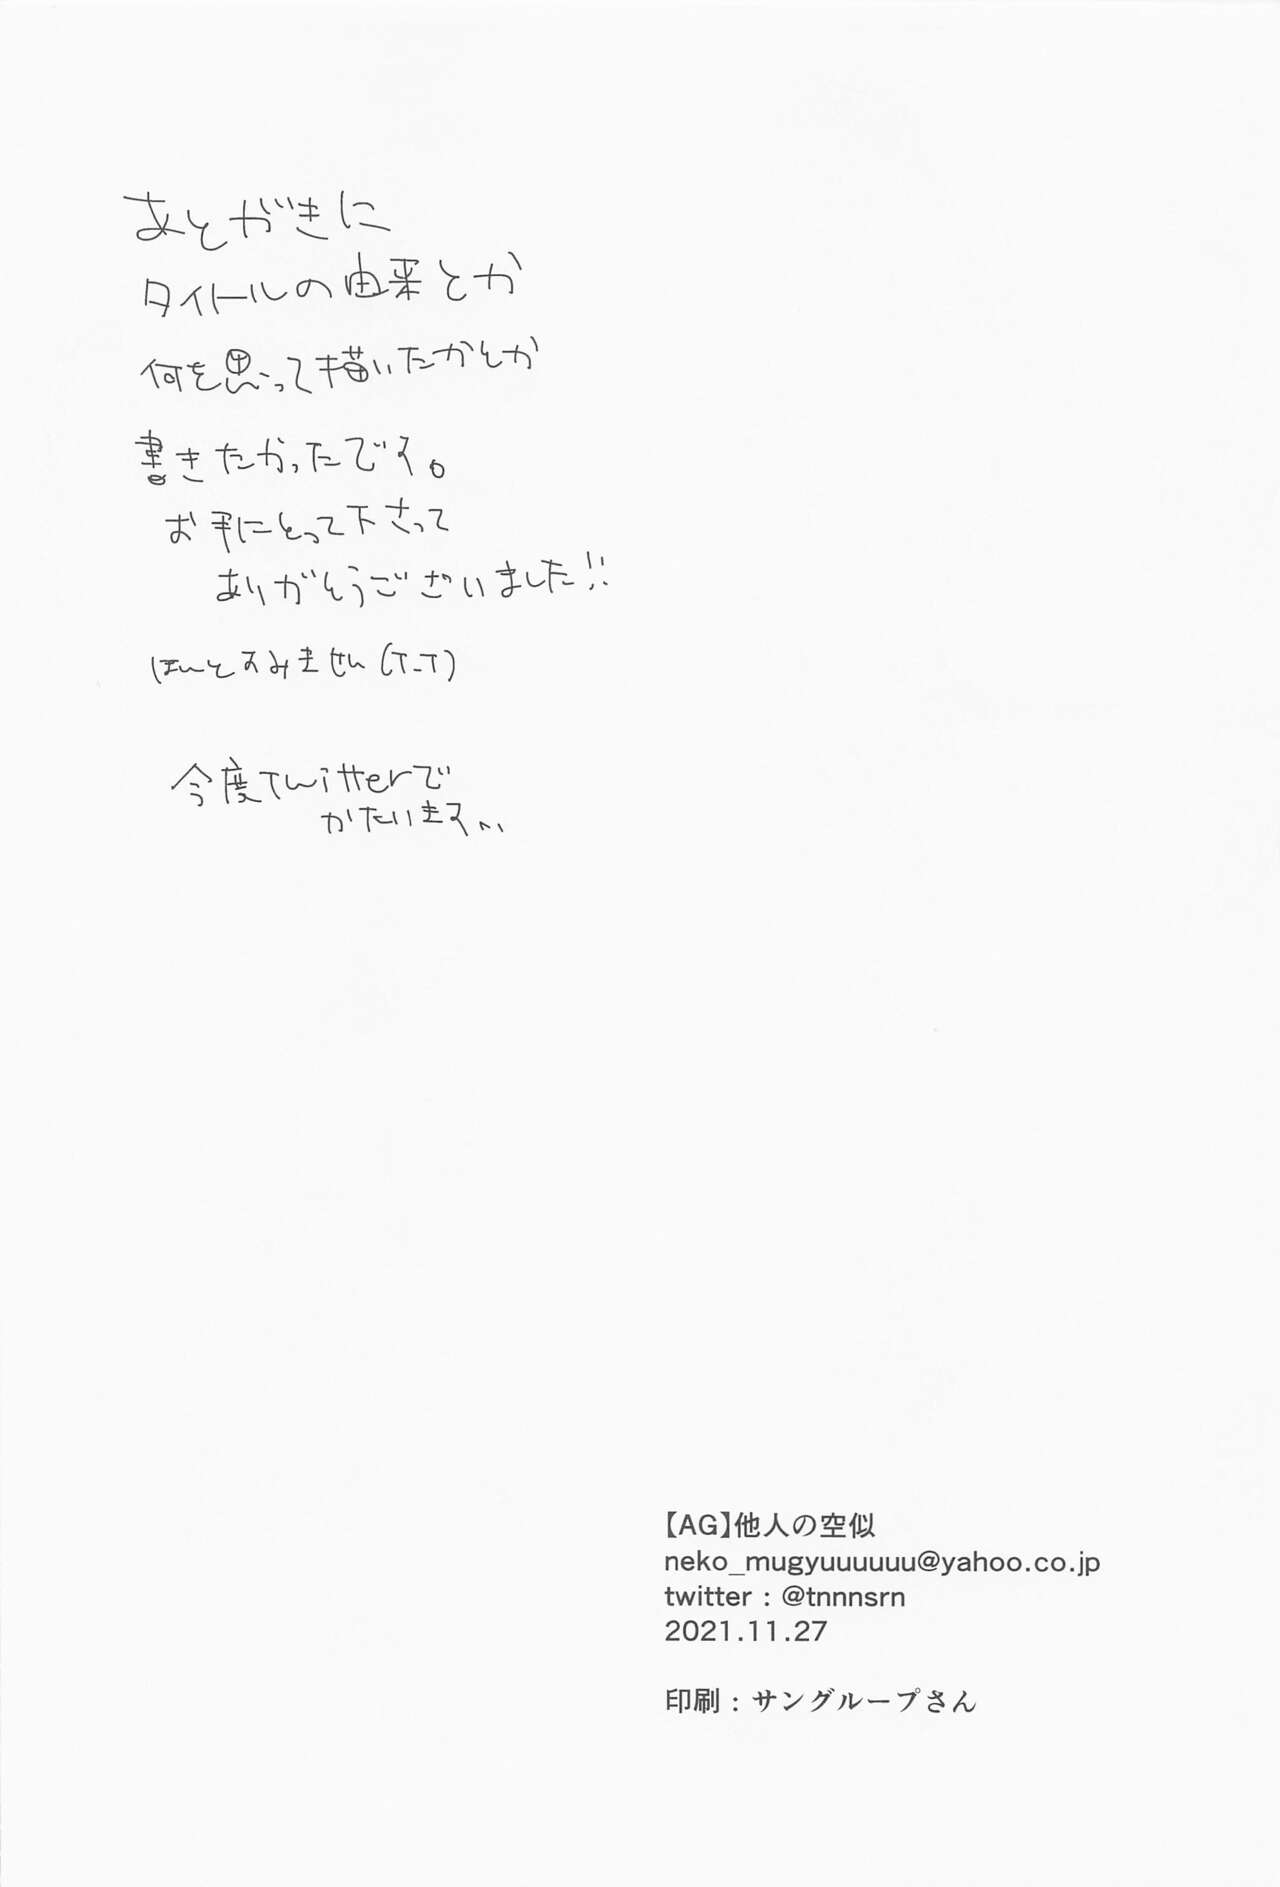 あとがきに
タイトルの由来とか
何を思って描いたかとか
書きたかったです。
お手にとって下さって
ありがとうございました!!
ほんとすみません(T_T)
今度Twitterで
かたります…
【AG】他人の空似
neko_mugyuuuuuu@yahoo.co.jp
twitter : @tnnnsrn
2021.11.27
印刷 : サングループさん